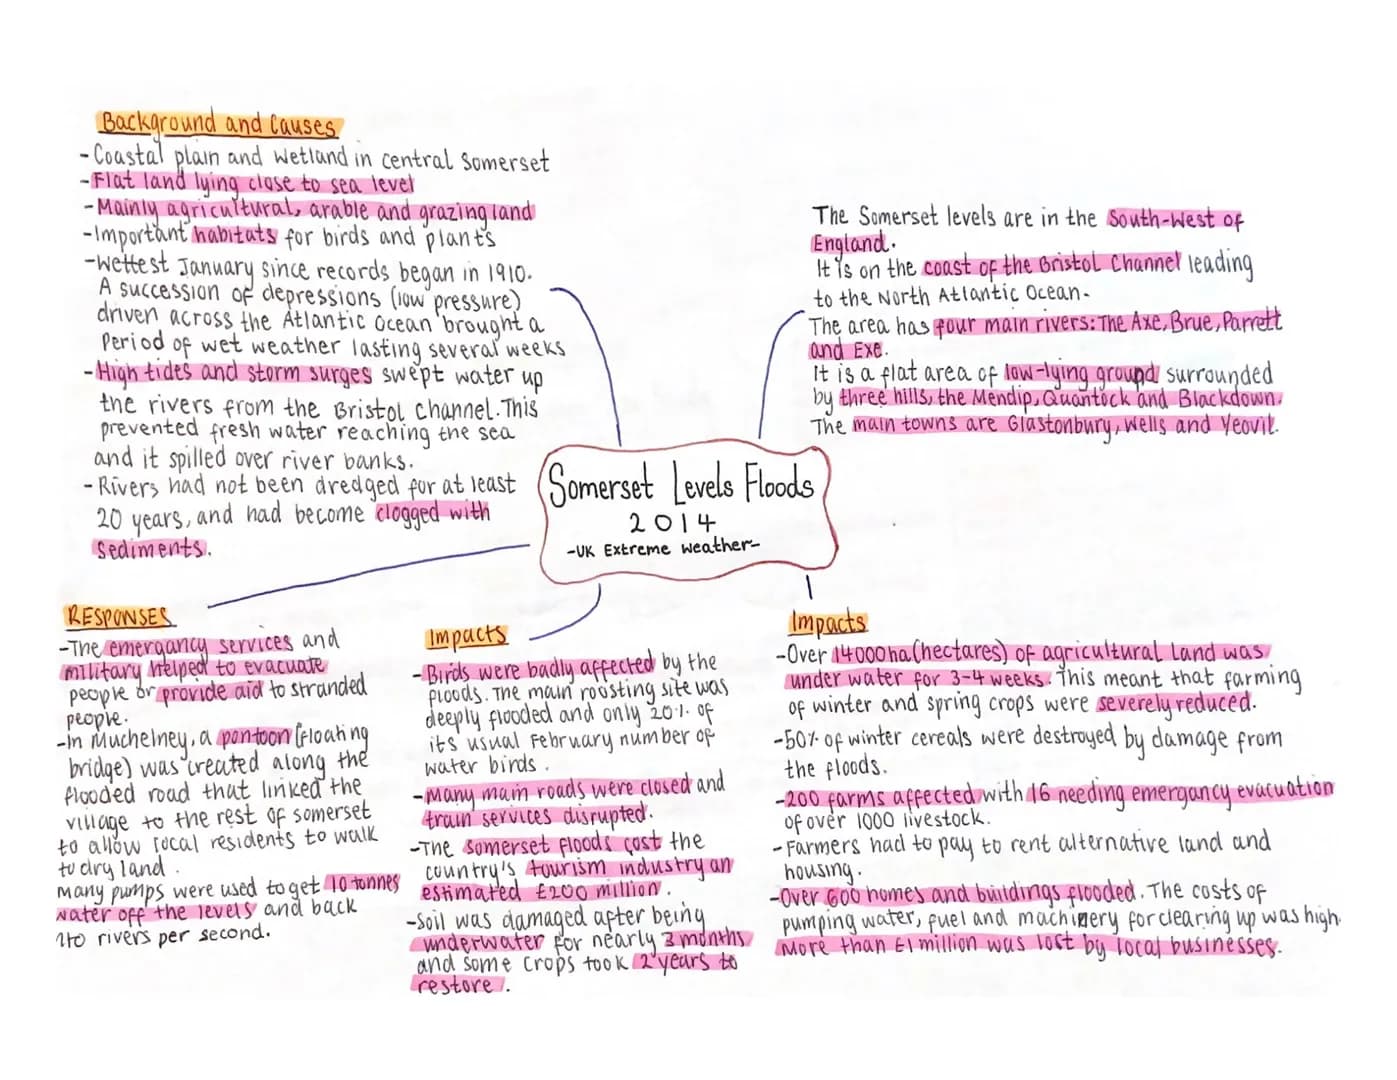 Background and Causes
- Coastal plain and wetland in central Somerset
- Flat land lying close to sea level
- Mainly agricultural, arable and grazing land
- Important habitats for birds and plants
- Wettest January since records began in 1910.
A succession of depressions (low pressure)
driven across the Atlantic Ocean brought a
Period of wet weather lasting several weeks
- High tides and storm surges swept water up
the rivers from the Bristol Channel. This
prevented fresh water reaching the sea
and it spilled over river banks.
- Rivers had not been dredged for at least
20 years, and had become clogged with
sediments.
The Somerset levels are in the South-West of
England.
It is on the coast of the Bristol Channel leading
to the North Atlantic Ocean.
The area has four main rivers: The Axe, Brue, Parrett
and Exe.
It is a flat area of low-lying ground surrounded
by three hills, the Mendip, Quantock and Blackdown.
The main towns are Glastonbury, Wells and Yeovil.
Somerset Levels Floods
2014
-UK Extreme weather-
RESPONSES
- The emergancy services and
military helped to evacuate
people or provide aid to stranded
people.
- In Muchelney, a pontoon (floating
bridge) was created along the
flooded road that linked the
village to the rest of somerset
to allow local residents to walk
to dry land.
Many pumps were used to get 10 tonnes
water off the levels and back
into rivers per second.
Impacts
- Birds were badly affected by the
floods. The main roosting site was
deeply flooded and only 20% of
its usual February number of
water birds.
- Many main roads were closed and
train services disrupted.
- The somerset floods cost the
country's tourism industry an
estimated £200 million.
- Soil was damaged after being
underwater for nearly 3 months
and some crops took 2 years to
restore.
Impacts
- Over 14000ha (hectares) of agricultural land was
under water for 3-4 weeks. This meant that farming
of winter and spring crops were severely reduced.
- 50% of winter cereals were destroyed by damage from
the floods.
- 200 farms affected with 16 needing emergancy evacuation
of over 1000 livestock.
- Farmers had to pay to rent alternative land and
housing.
- Over 600 homes and buildings flooded. The costs of
pumping water, fuel and machinery for clearing up was high.
More than £1 million was lost by local businesses.